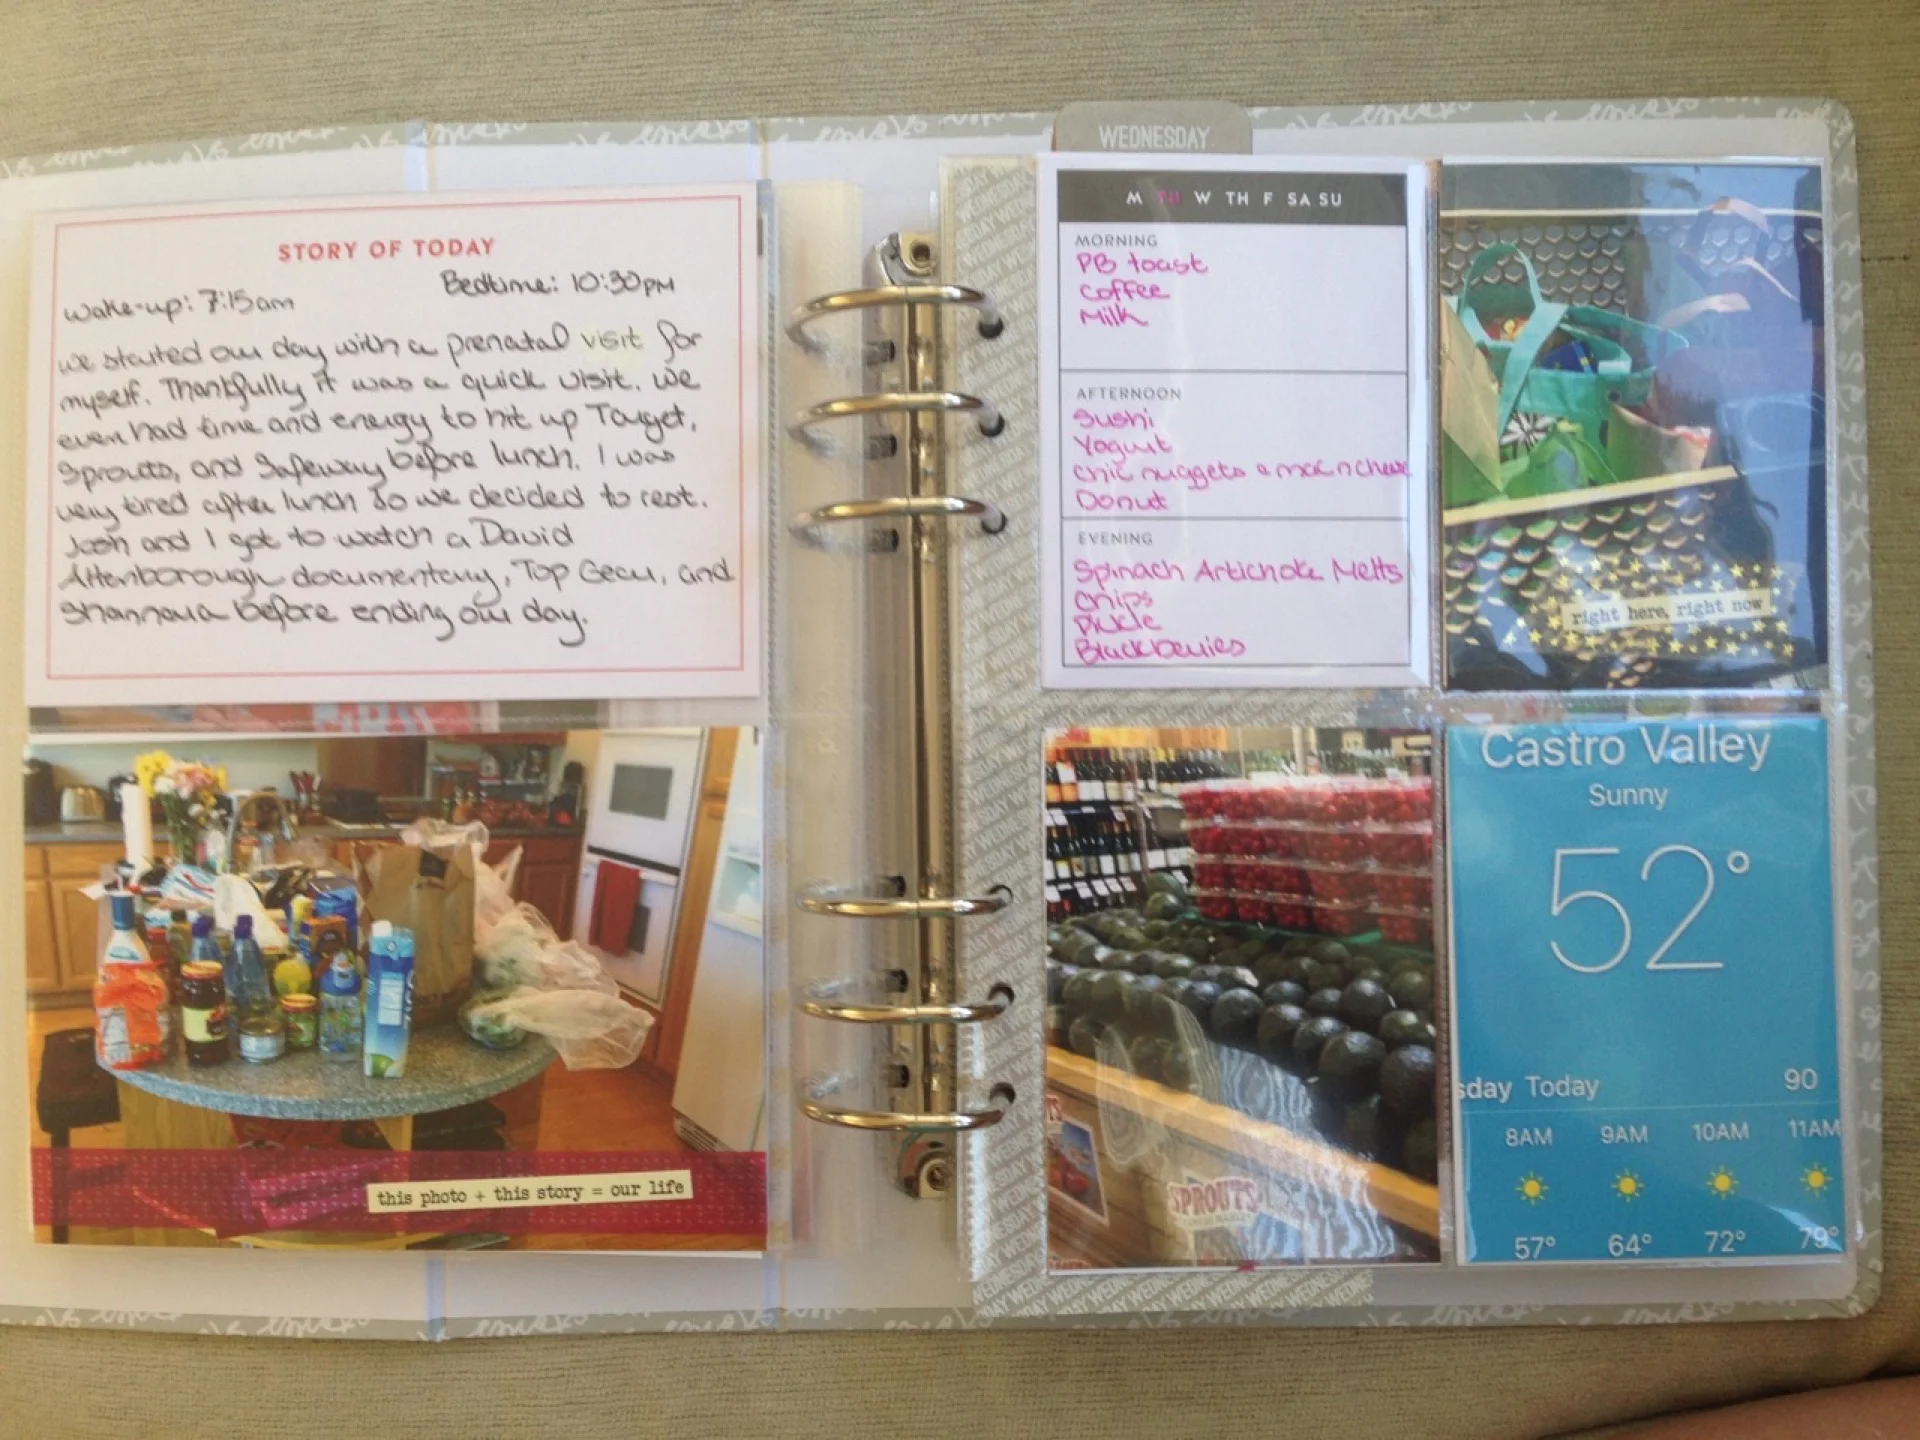 WEDNESDAY
STORY OF TODAY
Bedtime: 10:30PM
Wake-up: 7:15am
we started our day with a prenatal visit for
myself. Thankfully it was a quick visit. We
even had time and energy to hit up Target,
Sprouts, and Safeway before lunch. I was
very tired after lunch so we decided to rest.
Josh and I got to watch a David
Attenborough documentary, Top Gear, and
Shannara before ending our day.
this photo + this story = our life
M TU W TH F SA SU
MORNING
PB toast
Coffee
Milk
AFTERNOON
Sushi
Yogurt
Chic nuggets & mac n cheese
Donut
EVENING
Spinach Artichoke Melts
Chips
Pickle
Blackberries
right here, right now
SPROUTS
Castro Valley
Sunny
52°
sday Today 90
8AM 9AM 10AM 11AM
57° 64° 72° 79°